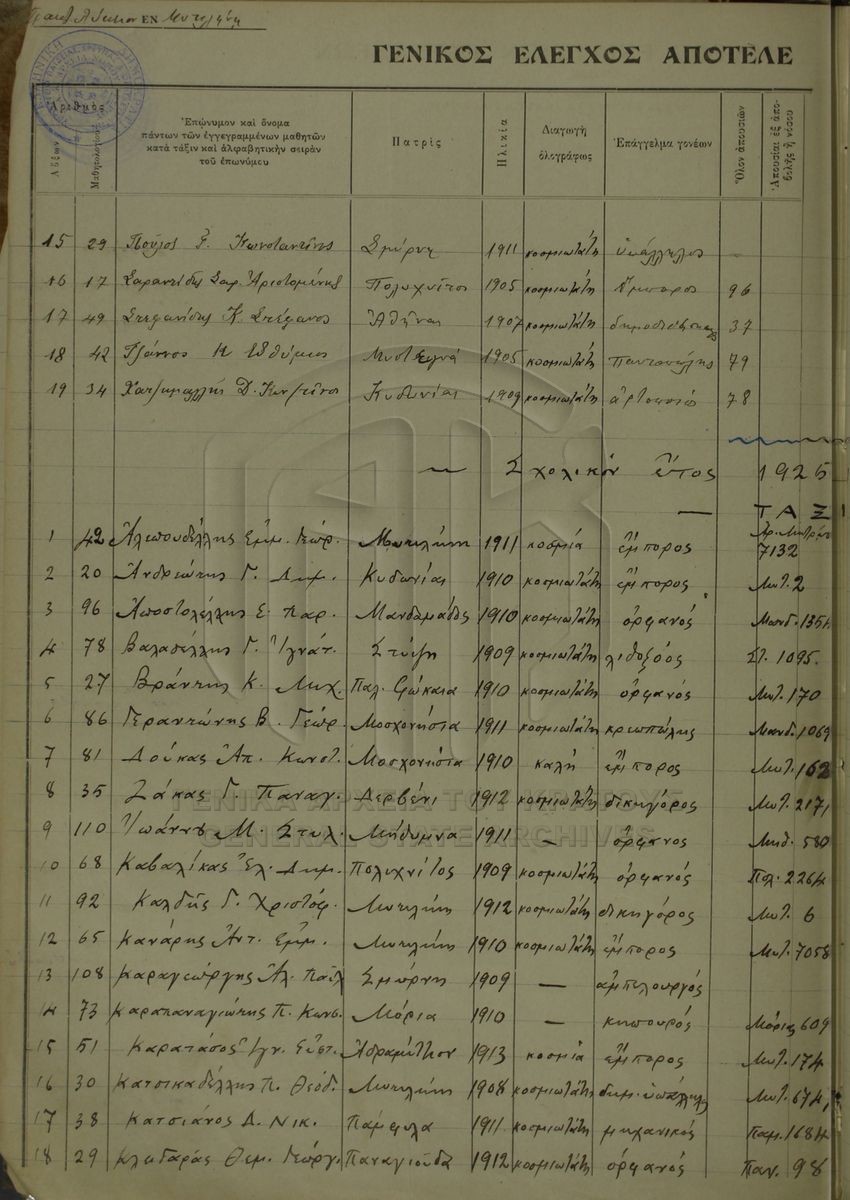 Πρακτ. Λύκειον ΕΝ Μυτιλήνῃ
ΓΕΝΙΚΟΣ ΕΛΕΓΧΟΣ ΑΠΟΤΕΛΕ
Ἀριθμὸς
Αὔξων
Μαθητολογίου
Ἐπώνυμον καὶ ὄνομα
πάντων τῶν ἐγγεγραμμένων μαθητῶν
κατὰ τάξιν καὶ ἀλφαβητικὴν σειρὰν
τοῦ ἐπωνύμου
Πατρὶς
Ἡλικία
Διαγωγὴ
ὁλογράφως
Ἐπάγγελμα γονέων
Ὅλον ἀπουσιῶν
Ἀπουσίαι ἐξ ἀπο-
βολῆς ἢ νόσου
15 29 Πούλος Κωνσταντῖνος Σμύρνη 1911 κοσμιωτάτη ὑπάλληλος –
16 17 Σαραντίδης Σαρ. Ἀριστομένης Πολυχνῖτος 1905 κοσμιωτάτη ἔμπορος 96
17 49 Στεφανίδης Κ. Στέφανος Ἀθῆναι 1907 κοσμιωτάτη 37
18 42 Τζάννος Εὐθύμιος Μυστεγνά 1905 κοσμιωτάτη παντοπώλης 79
19 34 Χατζημαλλῆς Δ. Κων/τῖνος Κυδωνίαι 1909 κοσμιωτάτη ἀρτοποιὸς 78
— Σχολικὸν ἔτος 1925
— ΤΑΞΙ
1 42 Ἀλεπουδέλλης Ἐμμ. Γεώρ. Μυτιλήνη 1911 κοσμία ἔμπορος 7132
2 20 Ἀνδρεώτης Γ. Δημ. Κυδωνίαι 1910 κοσμιωτάτη ἔμπορος Μυτ. 2
3 96 Ἀποστολέλλης Ε. Παρ. Μανδαμάδος 1910 κοσμιωτάτη ὀρφανός Μανδ. 1354
4 78 Βαλασέλλης Γ. Ἰγνάτ. Στύψη 1909 κοσμιωτάτη λιθοξόος Στ. 1095.
5 27 Βράντης Κ. Μιχ. Παλ. Φώκαια 1910 κοσμιωτάτη ὀρφανός Μυτ. 170
6 86 Γεραντώνης Β. Γεώρ. Μοσχονήσια 1911 κοσμιωτάτη κρεωπώλης Μανδ. 1069
7 81 Δούκας Ἀπ. Κωνστ. Μοσχονήσια 1910 καλὴ ἔμπορος Μυτ. 162
8 35 Ζάκας Γ. Παναγ. Δερβένι 1912 κοσμιωτάτη δικηγόρος Μυτ. 2171
9 110 Ἰωάννου Μ. Στυλ. Μήθυμνα 1911 — ὀρφανος Μηθ. 580
10 68 Καβαλίκας Ἐλ. Δημ. Πολυχνῖτος 1909 κοσμιωτάτη ὀρφανός Πολ. 2264
11 92 Καλδῆς Γ. Χριστόφ. Μυτιλήνη 1912 κοσμιωτάτη δικηγόρος Μυτ. 6
12 65 Κανάρης Ἀντ. Ἐμμ. Μυτιλήνη 1910 κοσμιωτάτη ἔμπορος Μυτ. 7058
13 108 Καραγεώργης Ἀλ. Παῦλ Σμύρνη 1909 — ἀμπελουργός
14 73 Καραπαναγιώτης Π. Κωνσ. Μόρια 1910 — κηπουρός Μόριας 609
15 51 Καρατάσος Ἰγν. Εὐστ. Ἀδραμύτιον 1913 κοσμία ἔμπορος Μυτ. 174
16 30 Κατσικαδέλλης Π. Θεόδ. Μυτιλήνη 1908 κοσμιωτάτη δημ. ὑπάλληλ Μυτ. 674
17 38 Κατσιάνος Δ. Νικ. Πάμφιλα 1911 κοσμιωτάτη μηχανικός Παμ. 1684
18 29 Κλειδαρᾶς Θεμ. Γεώργ. Παναγιοῦδα 1912 κοσμιωτάτη ὀρφανός Παν. 98
ΓΕΝΙΚΑ ΑΡΧΕΙΑ ΤΟΥ ΚΡΑΤΟΥΣ
GENERAL STATE ARCHIVES